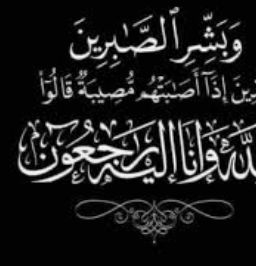 وَبَشِّرِ ٱلصَّـٰبِرِينَ
إِذَآ أَصَـٰبَتْهُم مُّصِيبَةٌ قَالُوٓا۟
وَإِنَّا إِلَيْهِ رَاجِعُونَ